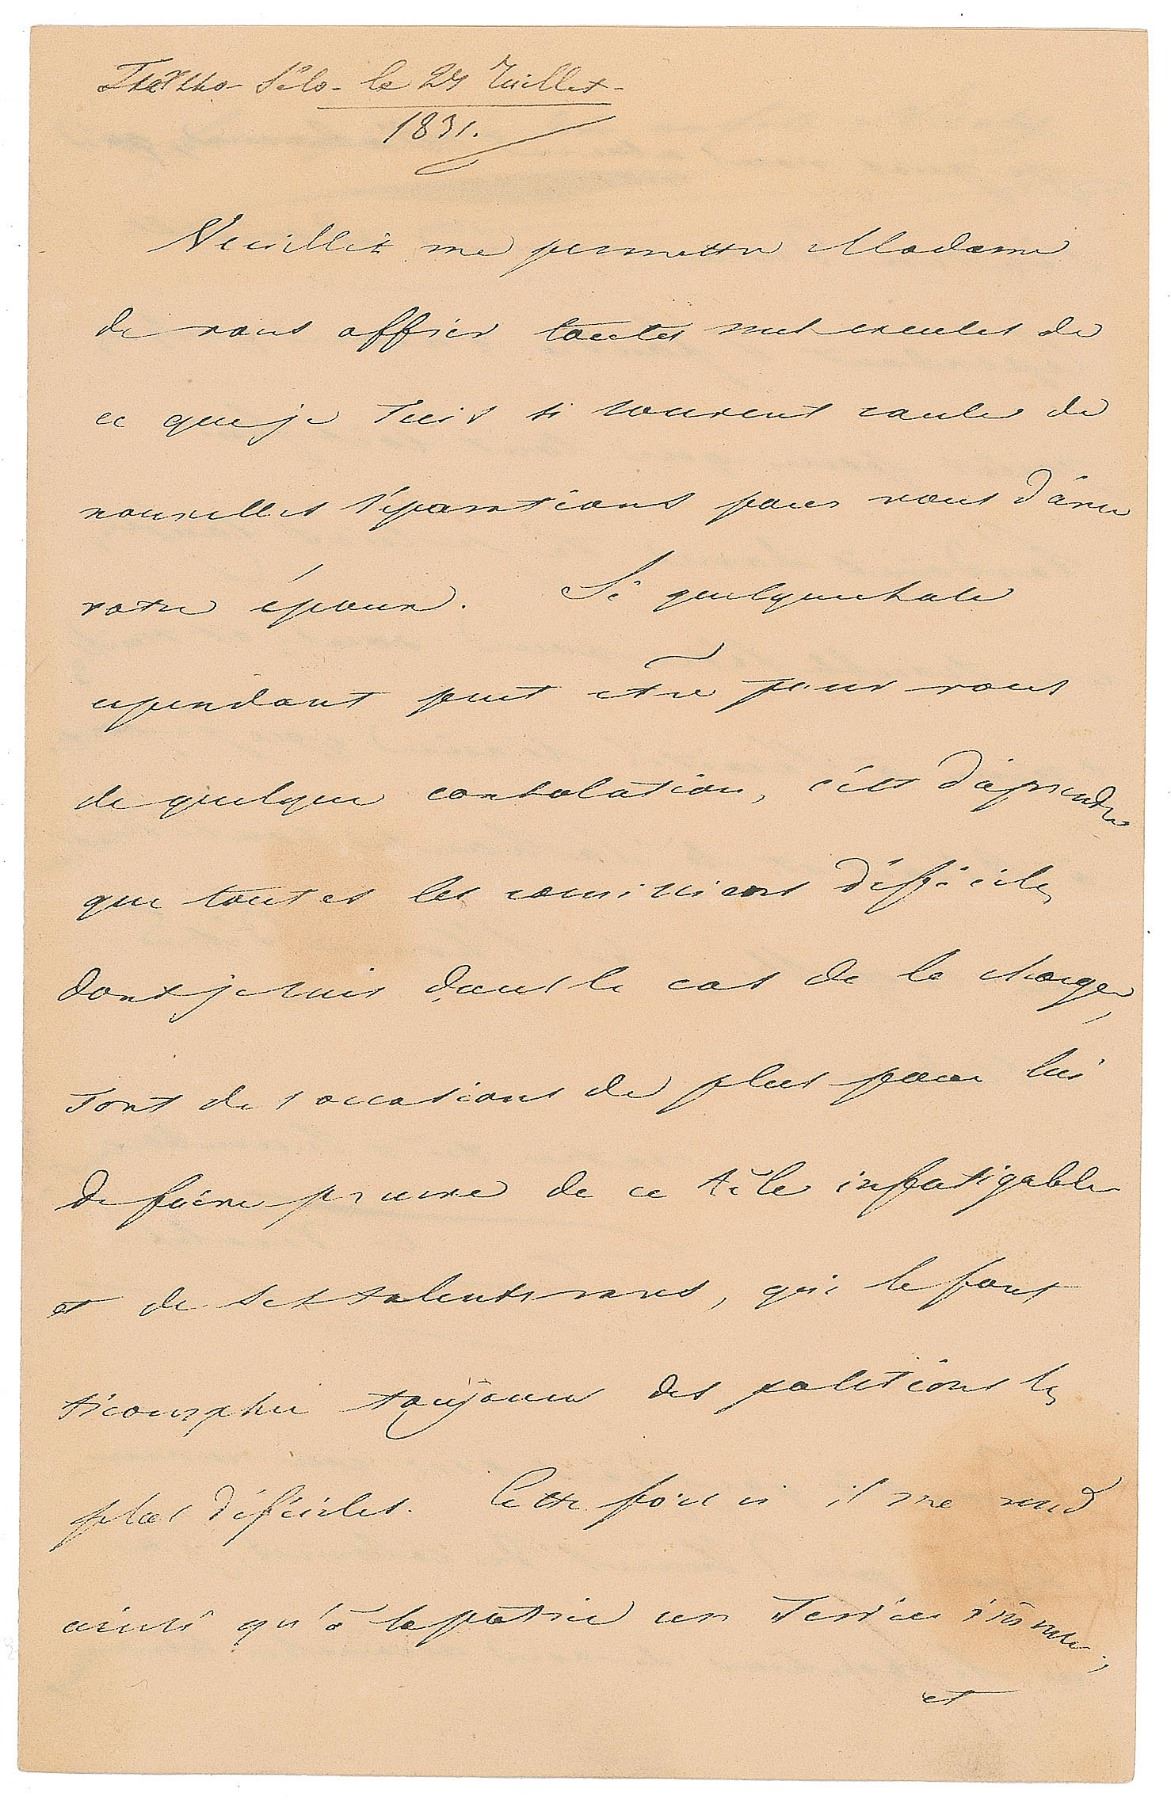 Sélo le 24 Juillet
1831.
Veuilléz me permettre Madame
de vous offrir toutes mes excuses de
ce que je suis si souvent cause de
nouvelles séparations pour vous d'avec
votre époux. Si quelquechose
cependant peut être pour vous
de quelque consolation, c'est d'aprendre
que toutes les comissions difficiles
dont je suis dans le cas de le charger,
sont des occasions de plus pour lui
de faire preuve de ce zèle infatigable
et de ses talents rares, qui le font
triompher toujours des positions les
plus dificiles. Cette fois ci il me rend
ainsi qu'à la patrie un service immense,
et